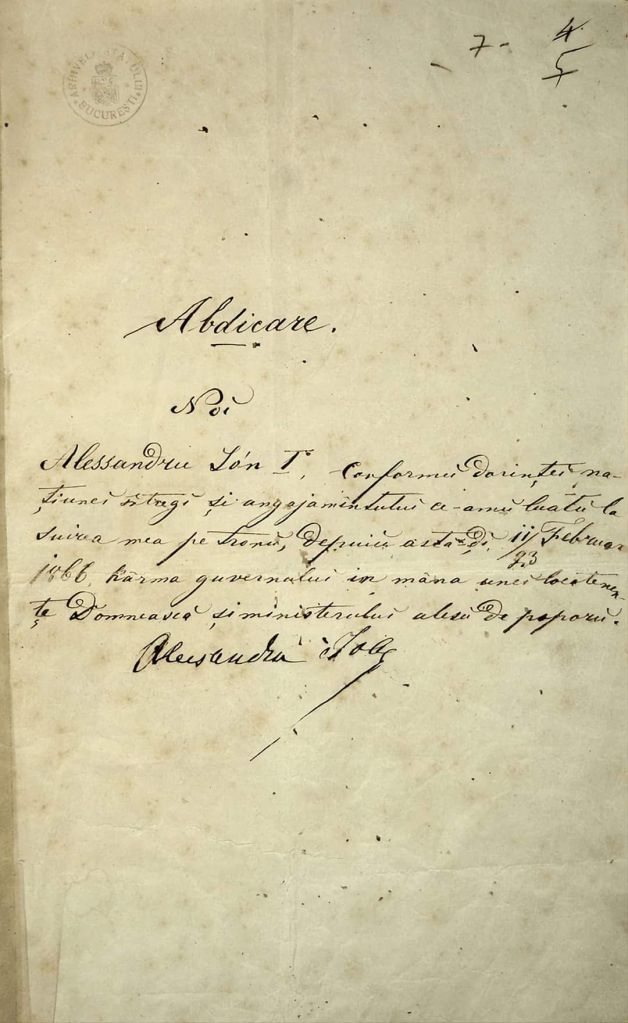 7- 4
5
ARHIVELE STATULUI
BUCURESTI
Abdicare.
Noi
Alessandru Ión I, Conformŭ dorinței na-
țiunei întregi și angajamintului ce-amŭ luatŭ la
suirea mea pe tronŭ, depuiŭ astă-di, 11/23 Februar
1866, kârma guvernului in mâna unei locotenen-
țe Domneascǎ și ministerului alesŭ de poporŭ.
Alecsandru Ioan